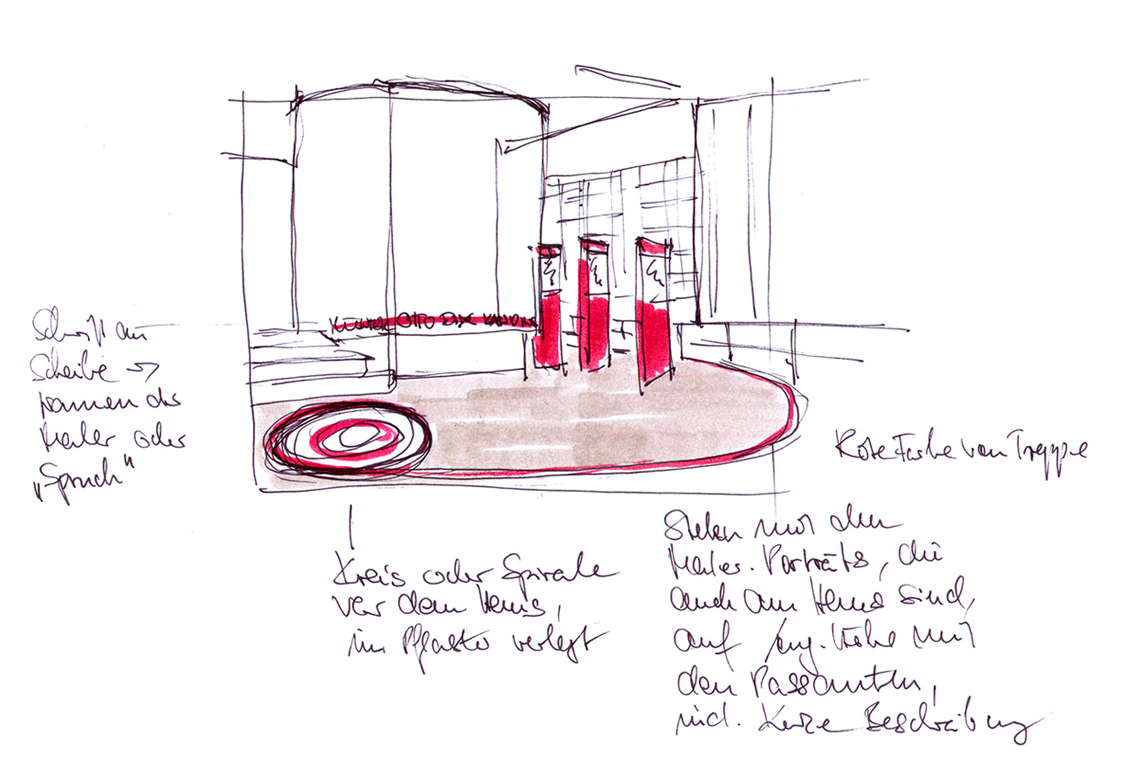 Schrift an
Scheibe →
Namen der
Maler oder
„Spruch“
OTTO DIX
Rote Farbe von Treppe
Kreis oder Spirale
vor dem Haus,
im Pflaster verlegt
Stelen mit den
Maler-Porträts, die
auch am Haus sind,
auf Aug.höhe mit
den Passanten,
incl. kurze Beschreibung